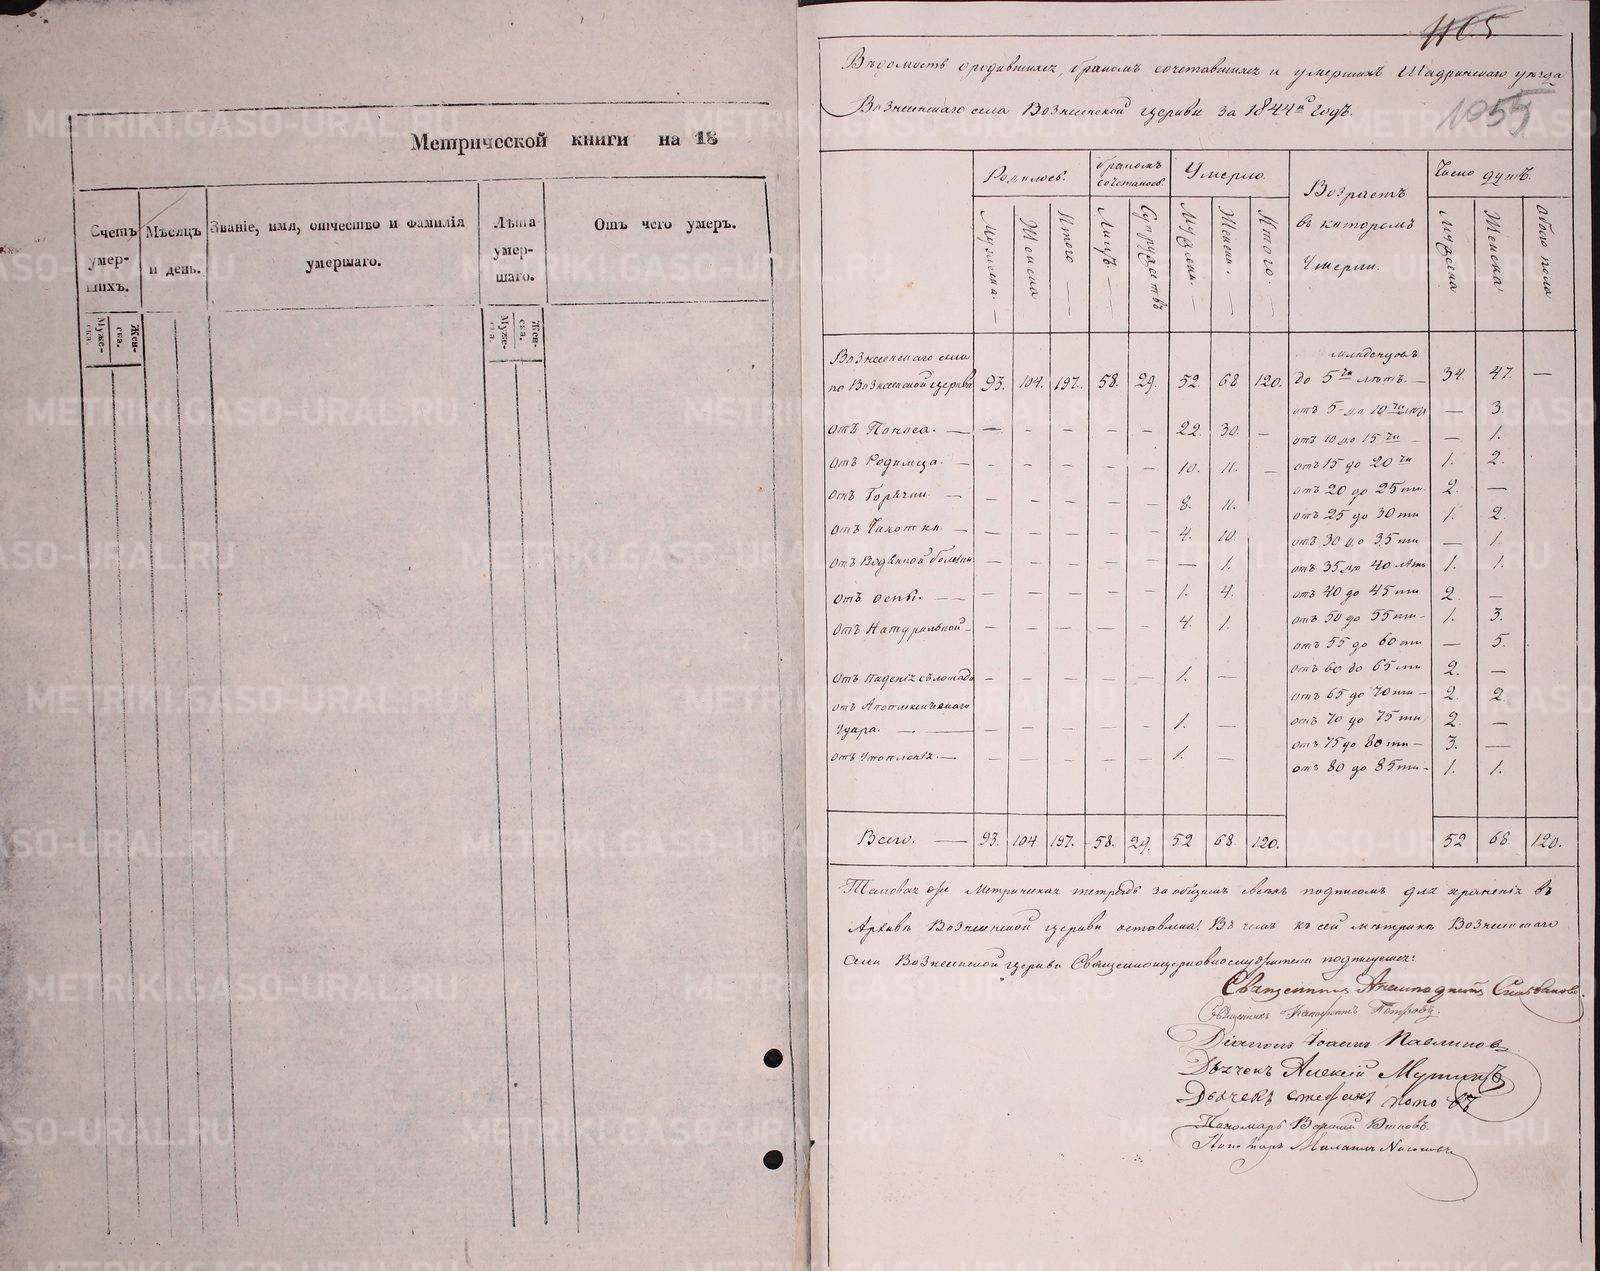 Метрической книги на 18
Счетъ умер-шихъ.
Мѣсяцъ и день.
Званіе, имя, отчество и фамилія умершаго.
Лѣта умер-шаго.
Отъ чего умеръ.
Муже-ска.
Жен-ска.
Муже-ска.
Жен-ска.
1055
Вѣдомость о родившихся, бракомъ сочетавшихся и умершихъ Шадринскаго уезда
Вознесенскаго села Вознесенской церкви за 1844й годъ.
Родилось.
бракомъ сочеталось.
Умерло.
Возрастъ въ которомъ Умерли.
Число душъ.
Мужеска.
Женска
Итого
Лицъ
Супружествъ
Мужеска
Женска
Итого.
Мужеска
Женска
Обоего пола
Вознесенскаго села
по Вознесенской церкви 93. 104. 197. 58. 29. 52. 68 120.
младенцовъ
до 5ти лѣтъ. — 34. 47. —
отъ 5 до 10ти — 3.
отъ Поноса. — — — — — — 22. 30. —
отъ 10 до 15ти — — 1.
отъ Родимца. — — — — — — 10. 11. —
отъ 15 до 20ти 1. 2.
отъ Горячки. — — — — — — 8. 11.
отъ 20 до 25ти. 2. —
отъ 25 до 30ти 1. 2.
отъ Чахотки. — — — — — — 4. 10.
отъ 30 до 35ти — 1.
отъ Водяной болезни. — — — — — — 1.
отъ 35 до 40 лѣтъ 1. 1.
отъ оспы. — — — — — — 1. 4.
отъ 40 до 45ти 2 —
отъ 50 до 55ти 1. 3.
отъ Натуральной — — — — — — 4. 1.
отъ 55 до 60ти — 5.
отъ 60 до 65ти 2. —
отъ Паденія съ лошади — — — — — 1. —
отъ 65 до 70ти 2. 2
отъ Апоплексическаго
удара. — — — — — — 1. —
отъ 70 до 75ти 2. —
отъ 75 до 80ти 3. —
отъ Утопленія. — — — — — — 1. —
отъ 80 до 85ти 1. 1.
Всего. — 93. 104 197. 58. 29. 52 68 120. 52 68 120.
Таковая же Метрическая тетрадь за общимъ всѣхъ подписомъ для храненія въ
Архивѣ Вознесенской церкви оставлена. Въ чемъ къ сей метрикѣ Вознесенскаго
села Вознесенской церкви Священноцерковнослужители подписуемся:
Священникъ Сильвановъ
Священникъ Петровъ.
Діаконъ Іоаннъ Павлиновъ
Дьячекъ Алексій
Дьячекъ Стефанъ Поповъ
Пономарь Василій
Пономарь
METRIKI.GASO-URAL.RU